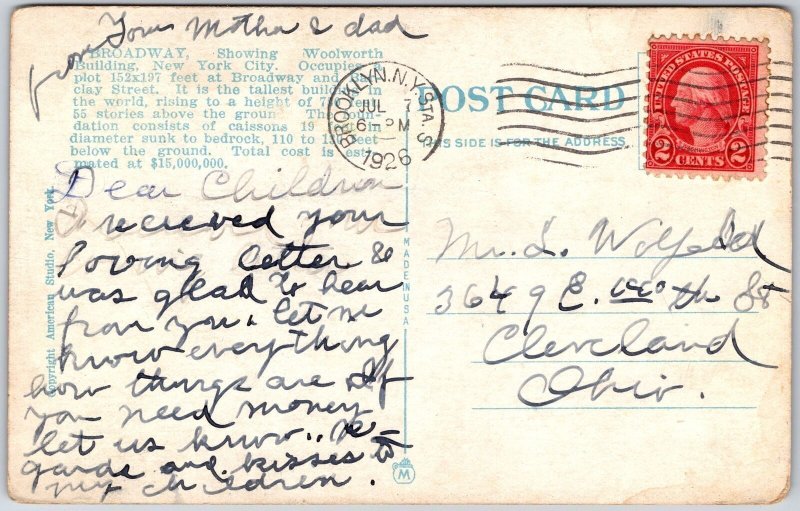 from Your Motha & dad
BROADWAY, Showing Woolworth
Building, New York City. Occupies
plot 152x197 feet at Broadway and
clay Street. It is the tallest building in
the world, rising to a height of
55 stories above the ground. The foun-
dation consists of caissons 19 in
diameter sunk to bedrock, 110 to feet
below the ground. Total cost is esti-
mated at $15,000,000.
Dear Children
I recieved your
loving letter &
was glad to hear
from you. let me
know everything
how things are If
you need money
let us know.. Re-
gards and kisses to
my children.
Copyright American Studio, New York
MADE IN USA
M
POST CARD
THIS SIDE IS FOR THE ADDRESS
BROOKLYN, N.Y. STA. S
JUL 7
6 PM
1926
UNITED STATES POSTAGE
2 CENTS 2
Mr. L.
3649 E. th St
Cleveland
Ohio.